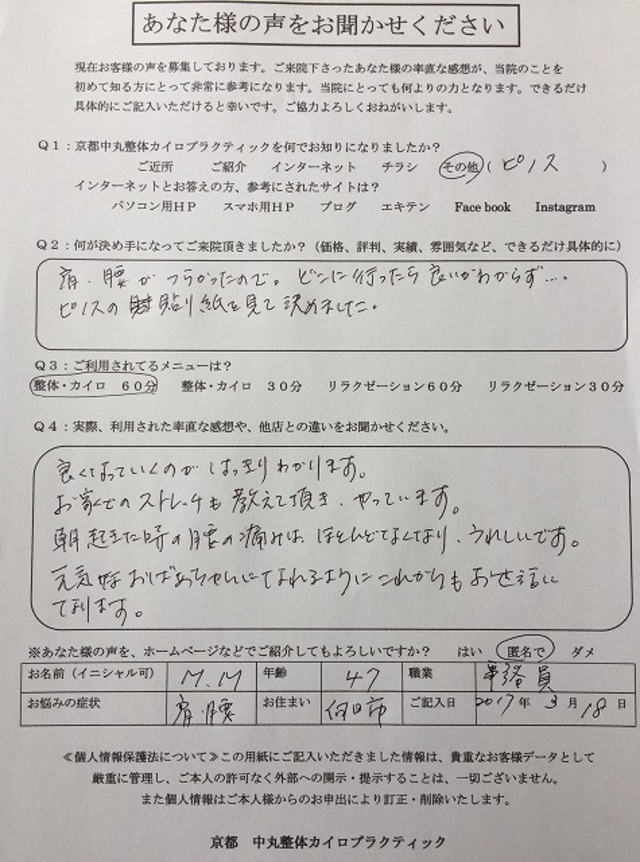 あなた様の声をお聞かせください
現在お客様の声を募集しております。ご来院下さったあなた様の率直な感想が、当院のことを
初めて知る方にとって非常に参考になります。当院にとっても何よりの力となります。できるだけ
具体的にご記入いただけると幸いです。ご協力よろしくおねがいします。
Q1：京都中丸整体カイロプラクティックを何でお知りになりましたか？
ご近所 ご紹介 インターネット チラシ その他（ピノス ）
インターネットとお答えの方、参考にされたサイトは？
パソコン用HP スマホ用HP ブログ エキテン Face book Instagram
Q2：何が決め手になってご来院頂きましたか？（価格、評判、実績、雰囲気など、できるだけ具体的に）
肩・腰がつらかったので。どこに行ったら良いかわからず…。
ピノスの貼り紙を見て決めました。
Q3：ご利用されてるメニューは？
整体・カイロ 60分 整体・カイロ 30分 リラクゼーション60分 リラクゼーション30分
Q4：実際、利用された率直な感想や、他店との違いをお聞かせください。
良くなっていくのがはっきりわかります。
お家でのストレッチも教えて頂き、やっています。
朝起きた時の腰の痛みは、ほとんどなくなり、うれしいです。
元気なおばあちゃんになれるようにこれからもお世話に
なります。
※あなた様の声を、ホームページなどでご紹介してもよろしいですか？ はい 匿名で ダメ
お名前（イニシャル可） M.M 年齢 47 職業 事務員
お悩みの症状 肩・腰 お住まい 向日市 ご記入日 2017年 3月 18日
≪個人情報保護法について≫この用紙にご記入いただきました情報は、貴重なお客様データとして
厳重に管理し、ご本人の許可なく外部への開示・提示することは、一切ございません。
また個人情報はご本人様からのお申出により訂正・削除いたします。
京都 中丸整体カイロプラクティック